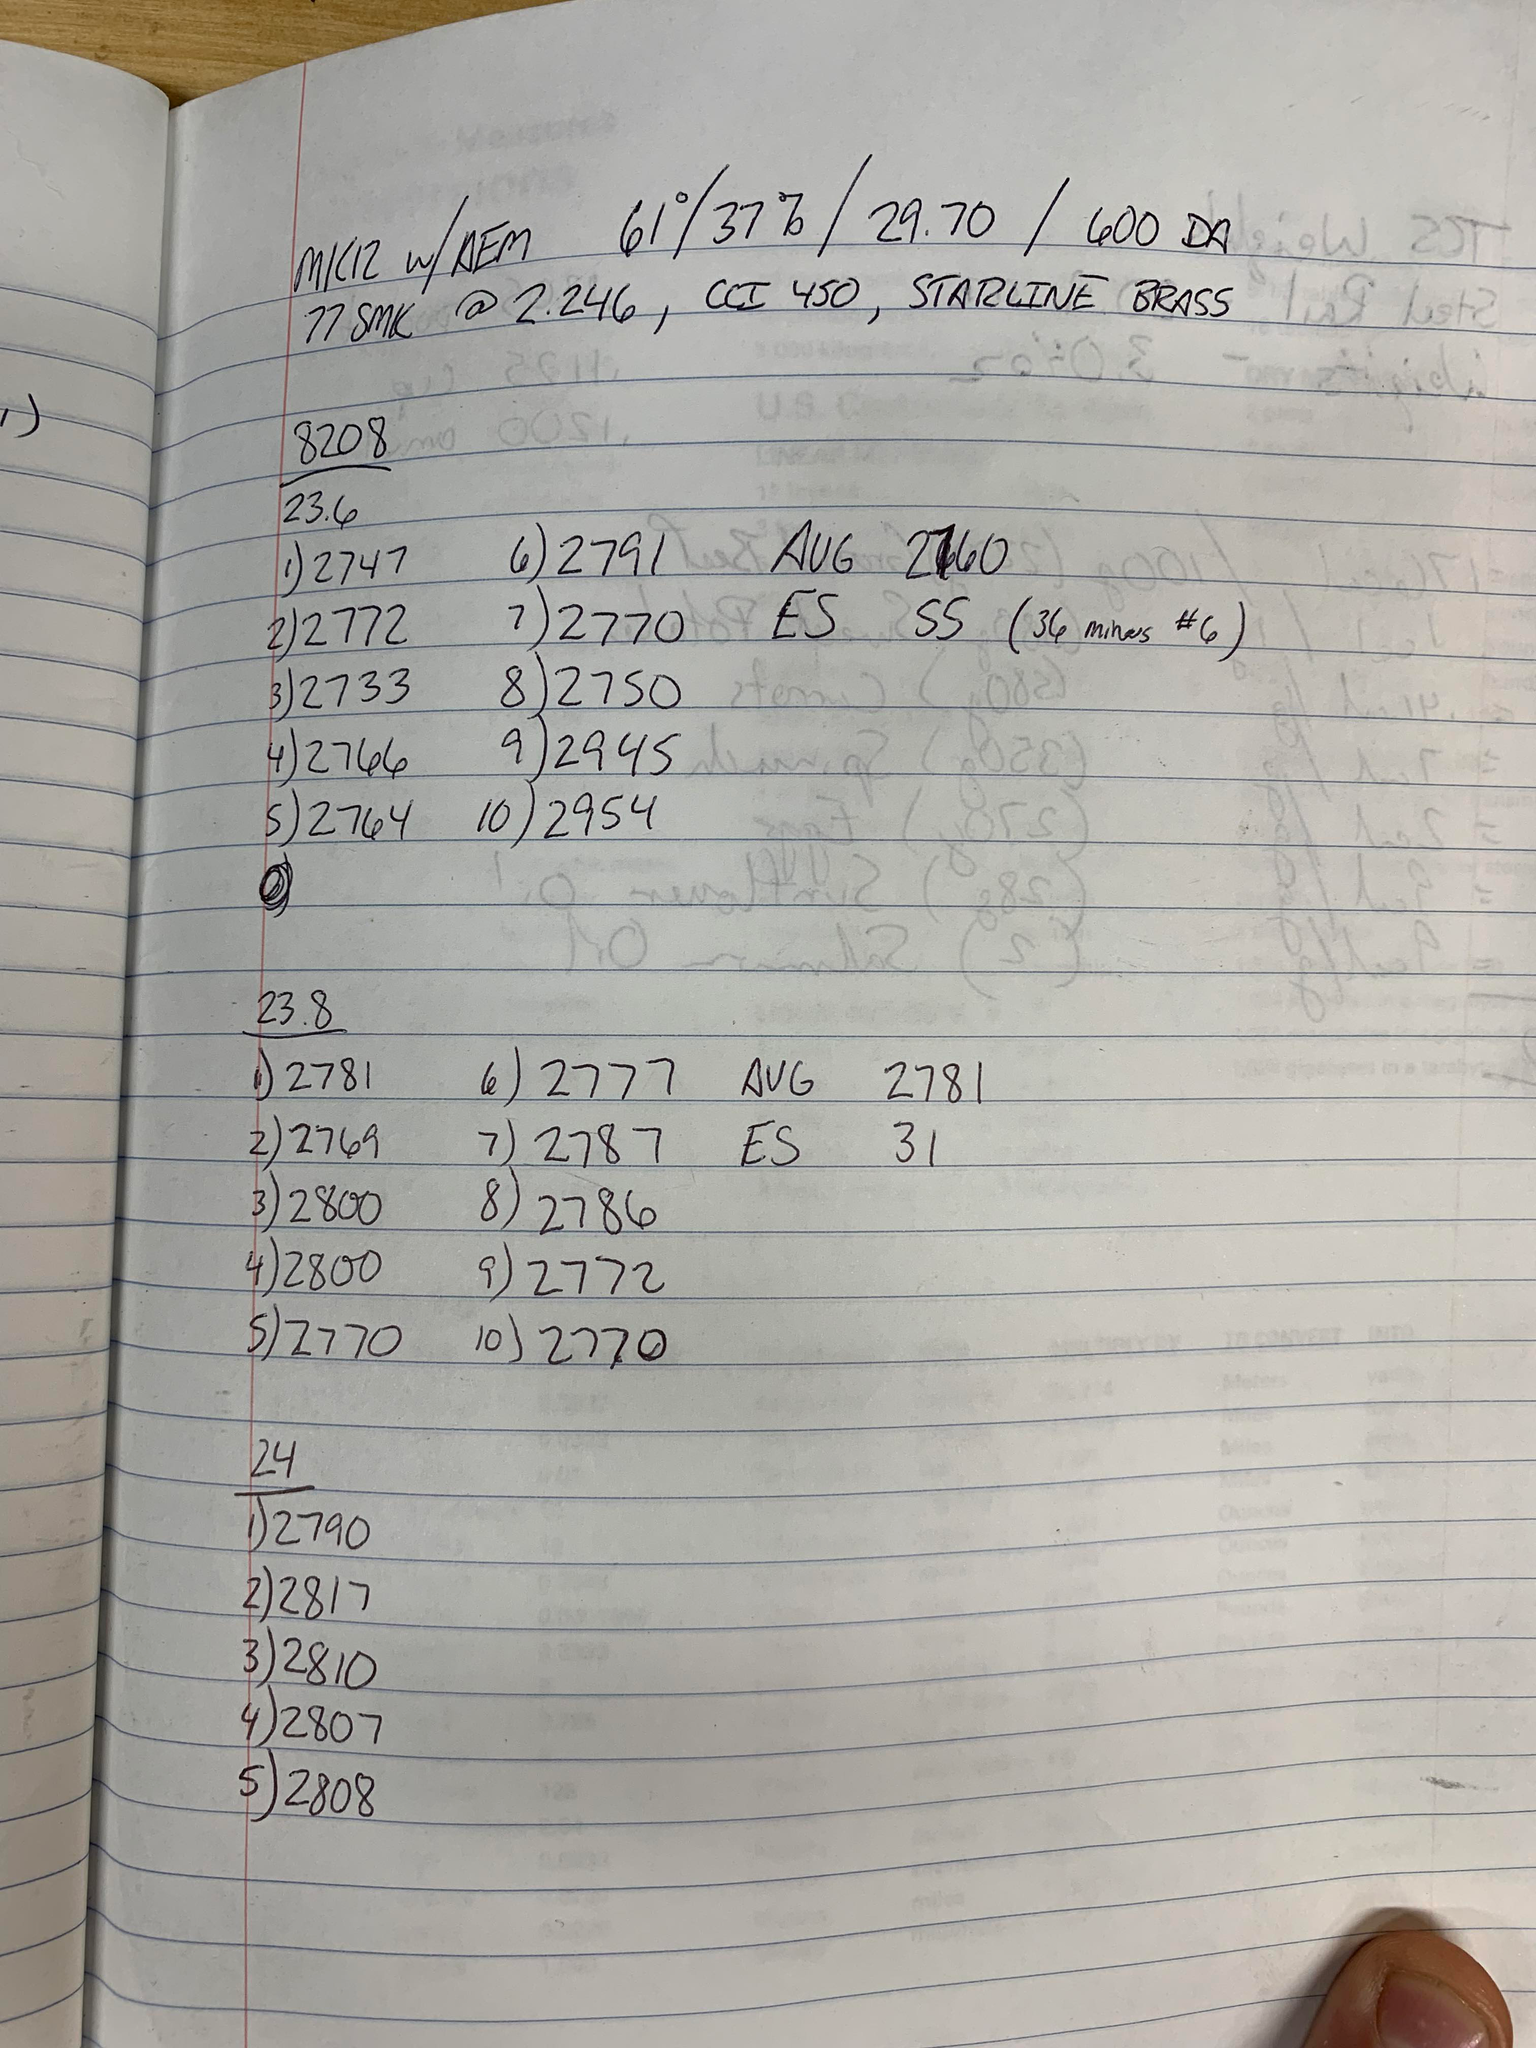 MK12 w/AEM 61°/37%/29.70/600 DA
77 SMK @ 2.246, CCI 450, STARLINE BRASS
8208
23.6
1) 2747 6) 2791 AVG 2760
2) 2772 7) 2770 ES 55 (36 minus #6)
3) 2733 8) 2750
4) 2766 9) 2945
5) 2764 10) 2954
23.8
1) 2781 6) 2777 AVG 2781
2) 2769 7) 2787 ES 31
3) 2800 8) 2786
4) 2800 9) 2772
5) 2770 10) 2770
24
1) 2790
2) 2817
3) 2810
4) 2807
5) 2808